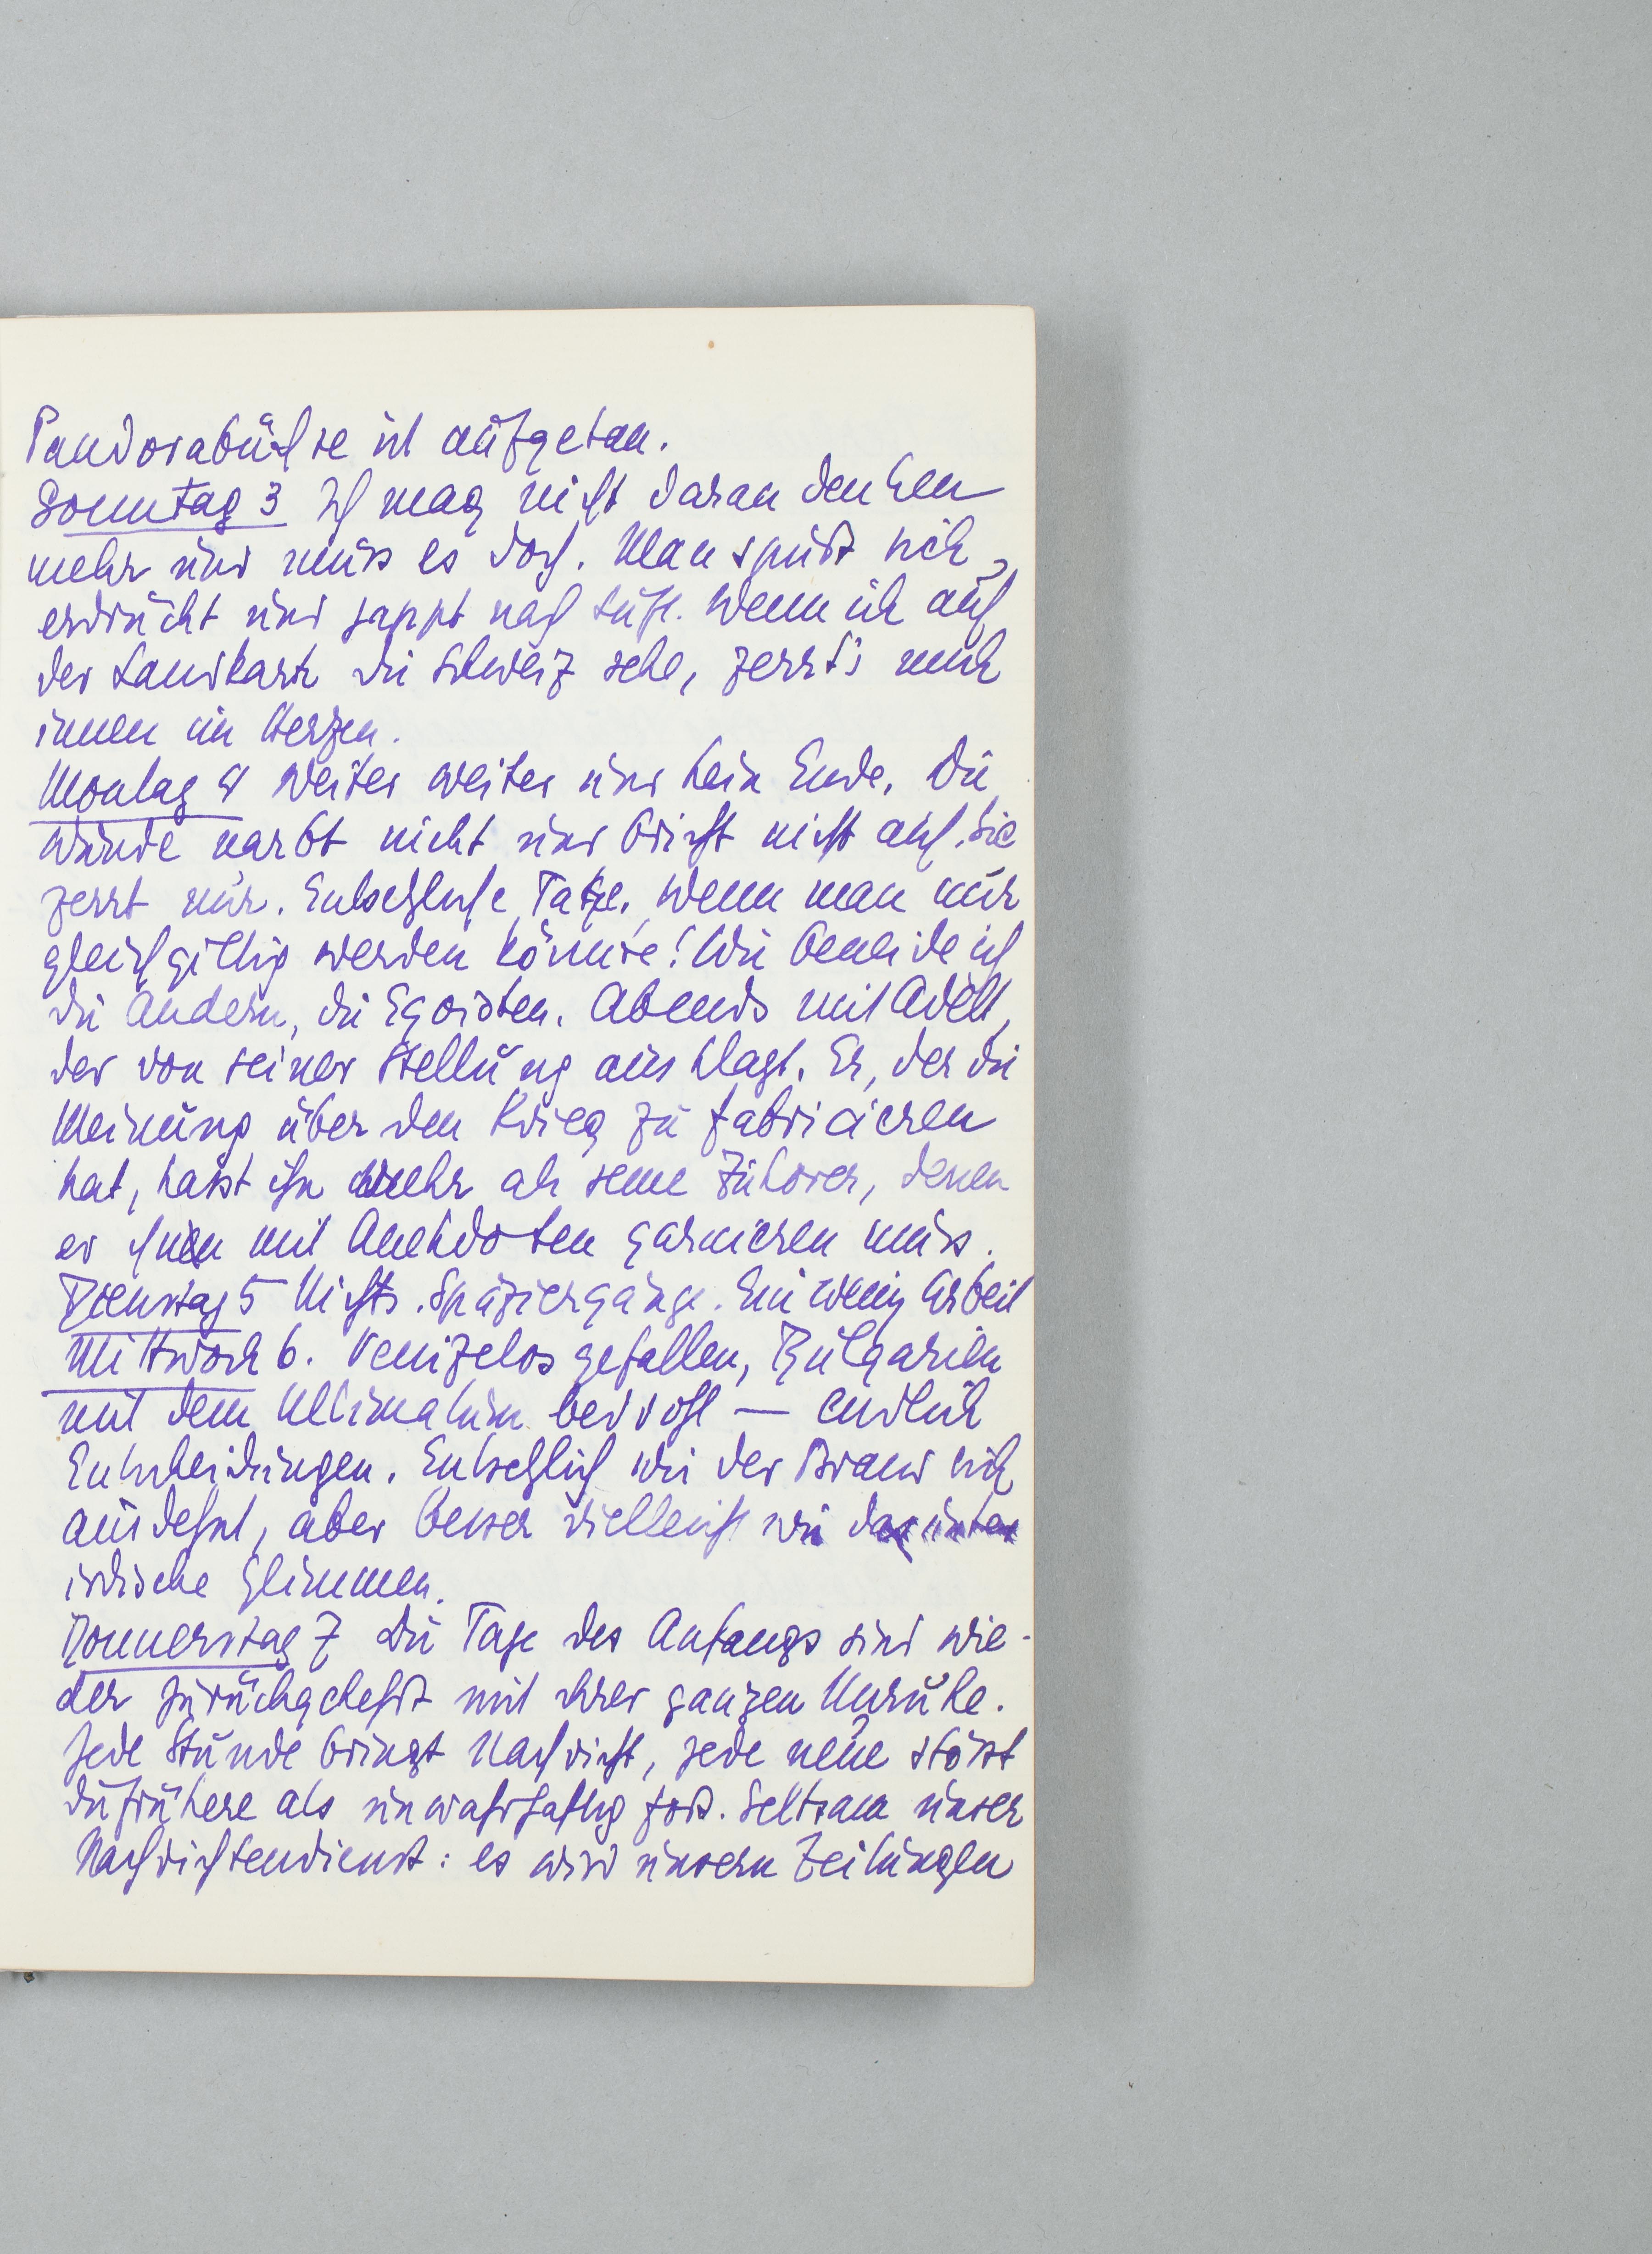 Pandorabüchse ist aufgetan.
Sonntag 3 Ich mag nicht daran denken
mehr und muss es doch. Man spürt sich
erdrückt und jappt nach Luft. Wenn ich auf
der Landkarte die Schweiz sehe, zerrt's mich
innen im Herzen.
Montag 4 Weiter weiter und kein Ende. Die
Wunde narbt nicht und bricht nicht auf. Sie
zerrt nur. Entsetzliche Tage. Wenn man nur
gleichgiltig werden könnte! Wie beneide ich
die Andern, die Egoisten. Abends mit Adelt,
der von seiner Stellung aus klagt. Er, der die
Meinung über den Krieg zu fabricieren
hat, hasst ihn mehr als seine Zuhörer, denen
er ihn mit Anekdoten garnieren muss.
Dienstag 5 Nichts. Spaziergänge. Ein wenig Arbeit
Mittwoch 6. Venizelos gefallen, Bulgarien
mit dem Ultimatum bedroht — endlich
Entscheidungen. Entsetzlich wie der Brand sich
ausdehnt, aber besser vielleicht wie das unter
irdische Glimmen.
Donnerstag 7 Die Tage des Anfangs sind wie-
der zurückgekehrt mit ihrer ganzen Unruhe.
Jede Stunde bringt Nachricht, jede neue stösst
die frühere als unwahrhaftig fort. Seltsam unser
Nachrichtendienst: es wird unsern Zeitungen